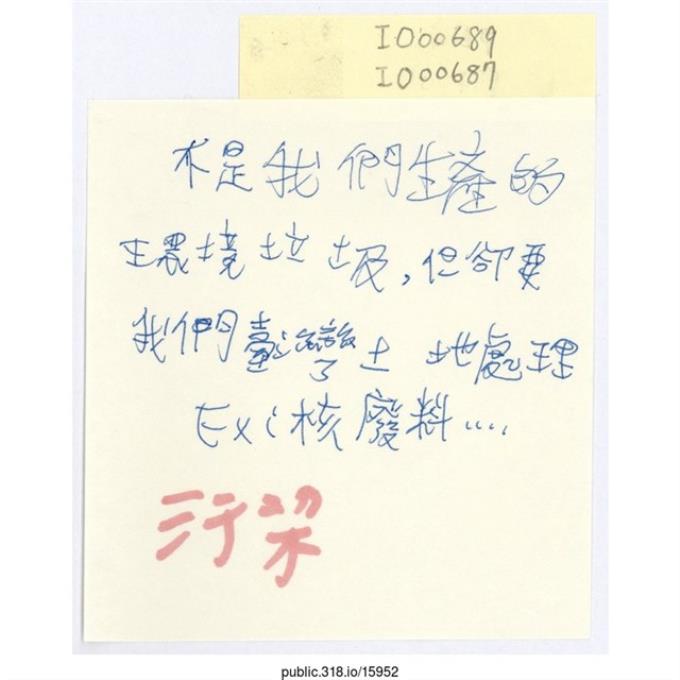 IO00689
IO00687
不是我們生產的
環境垃圾,但卻要
我們臺灣土地處理
Ex:核廢料....
污染
public.318.io/15952